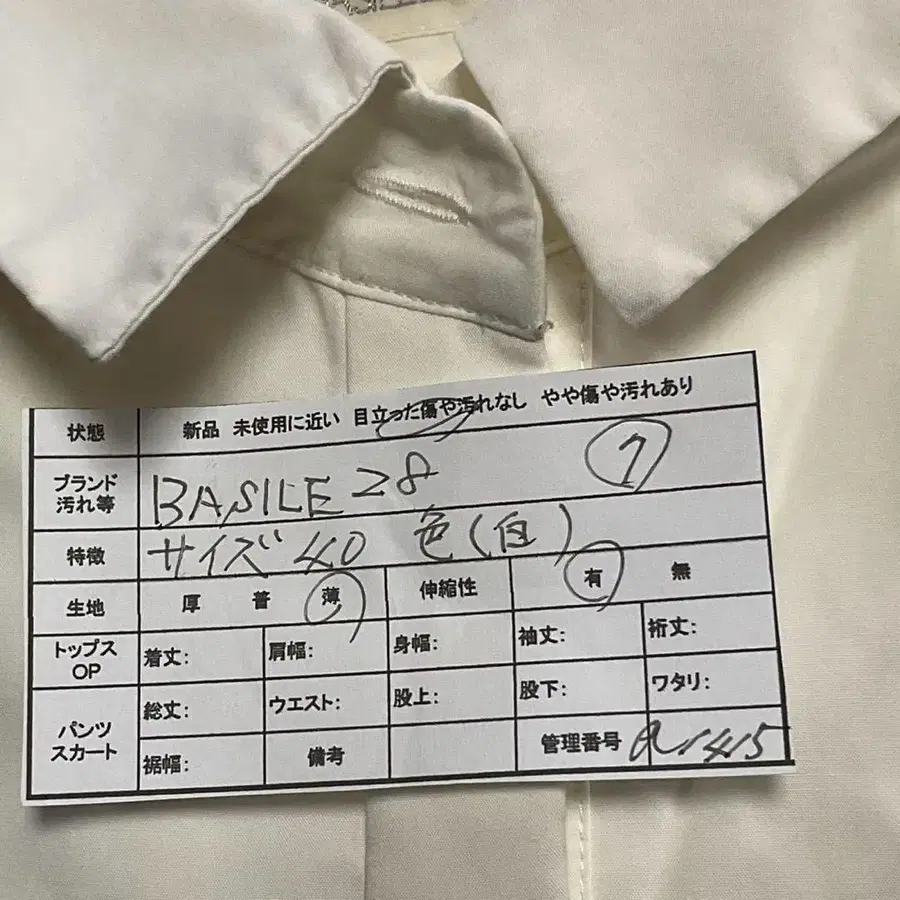 状態 新品 未使用に近い 目立った傷や汚れなし やや傷や汚れあり
ブランド
汚れ等
BASILE 28
特徴 サイズ40 色(白)
生地 厚 普 薄 伸縮性 有 無
トップス
OP
着丈: 肩幅: 身幅: 袖丈: 裄丈:
パンツ
スカート
総丈: ウエスト: 股上: 股下: ワタリ:
裾幅: 備考 管理番号 a1415